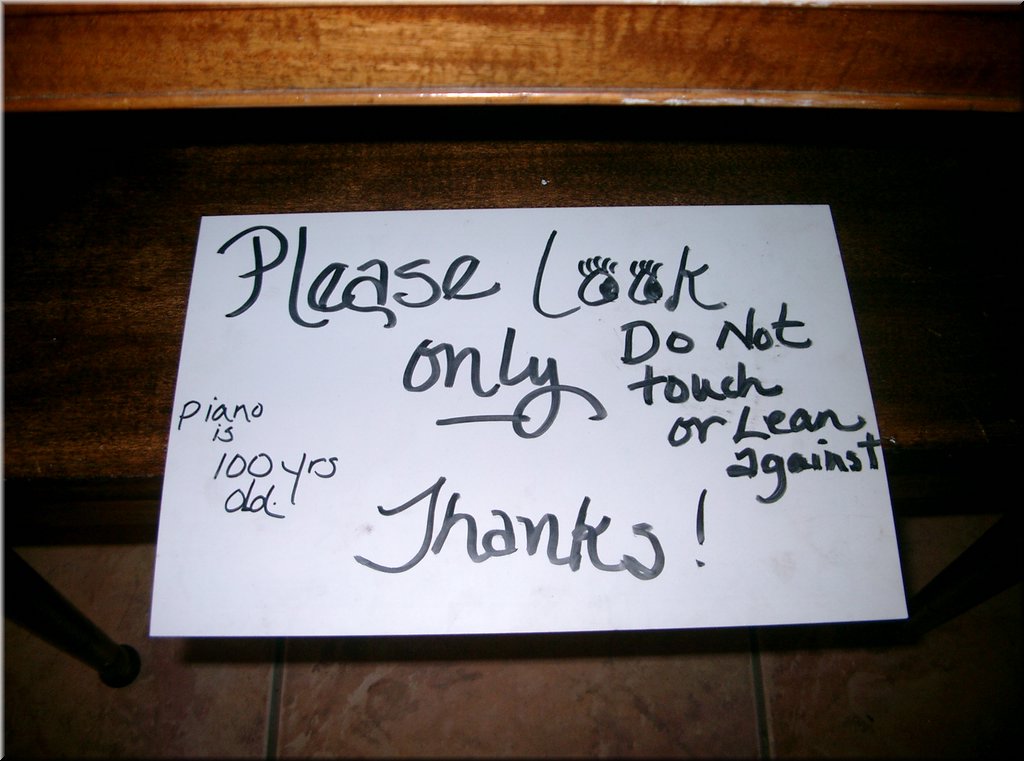 Please Look
only
Do Not
touch
or Lean
against
piano
is
100 yrs
old.
Thanks!